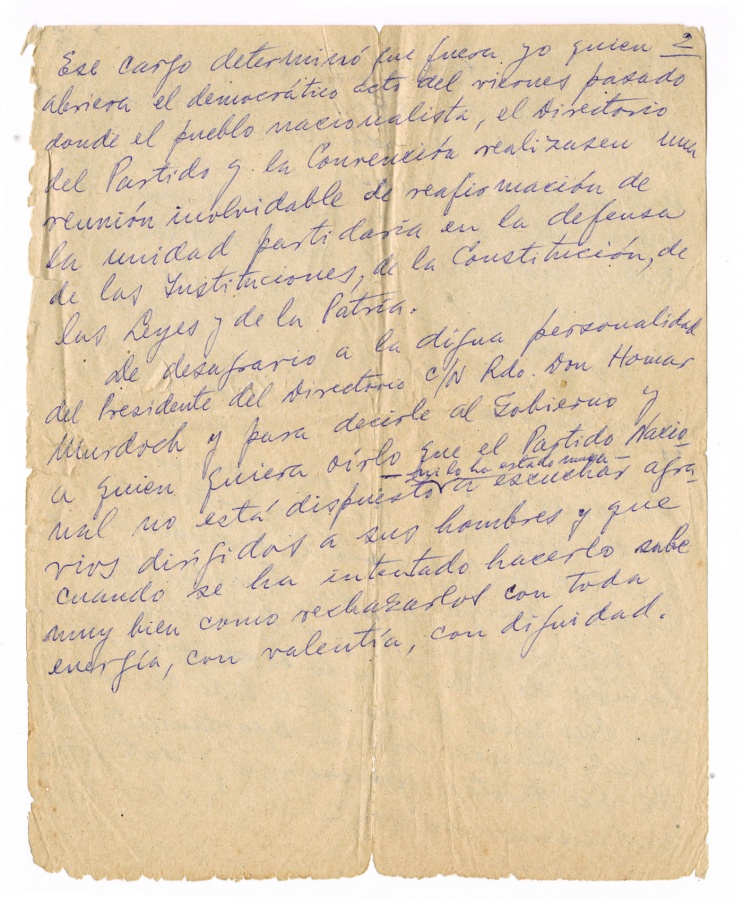 2
Ese cargo determinó que fuera yo quien
abriera el democrático acto del viernes pasado
donde el pueblo nacionalista, el Directorio
del Partido y la Convención realizasen una
reunión inolvidable de reafirmación de
la unidad partidaria en la defensa
de las Instituciones, de la Constitución, de
las Leyes y de la Patria.
De desagravio a la digna personalidad
del Presidente del Directorio c/N Rdo. Don Homar
Murdoch y para decirle al Gobierno y
a quien quiera oírlo que el Partido Nacio-
nal no está dispuesto – ni lo ha estado nunca – a escuchar agra-
vios dirigidos a sus hombres y que
cuando se ha intentado hacerlo sabe
muy bien como rechazarlos con toda
energía, con valentía, con dignidad.